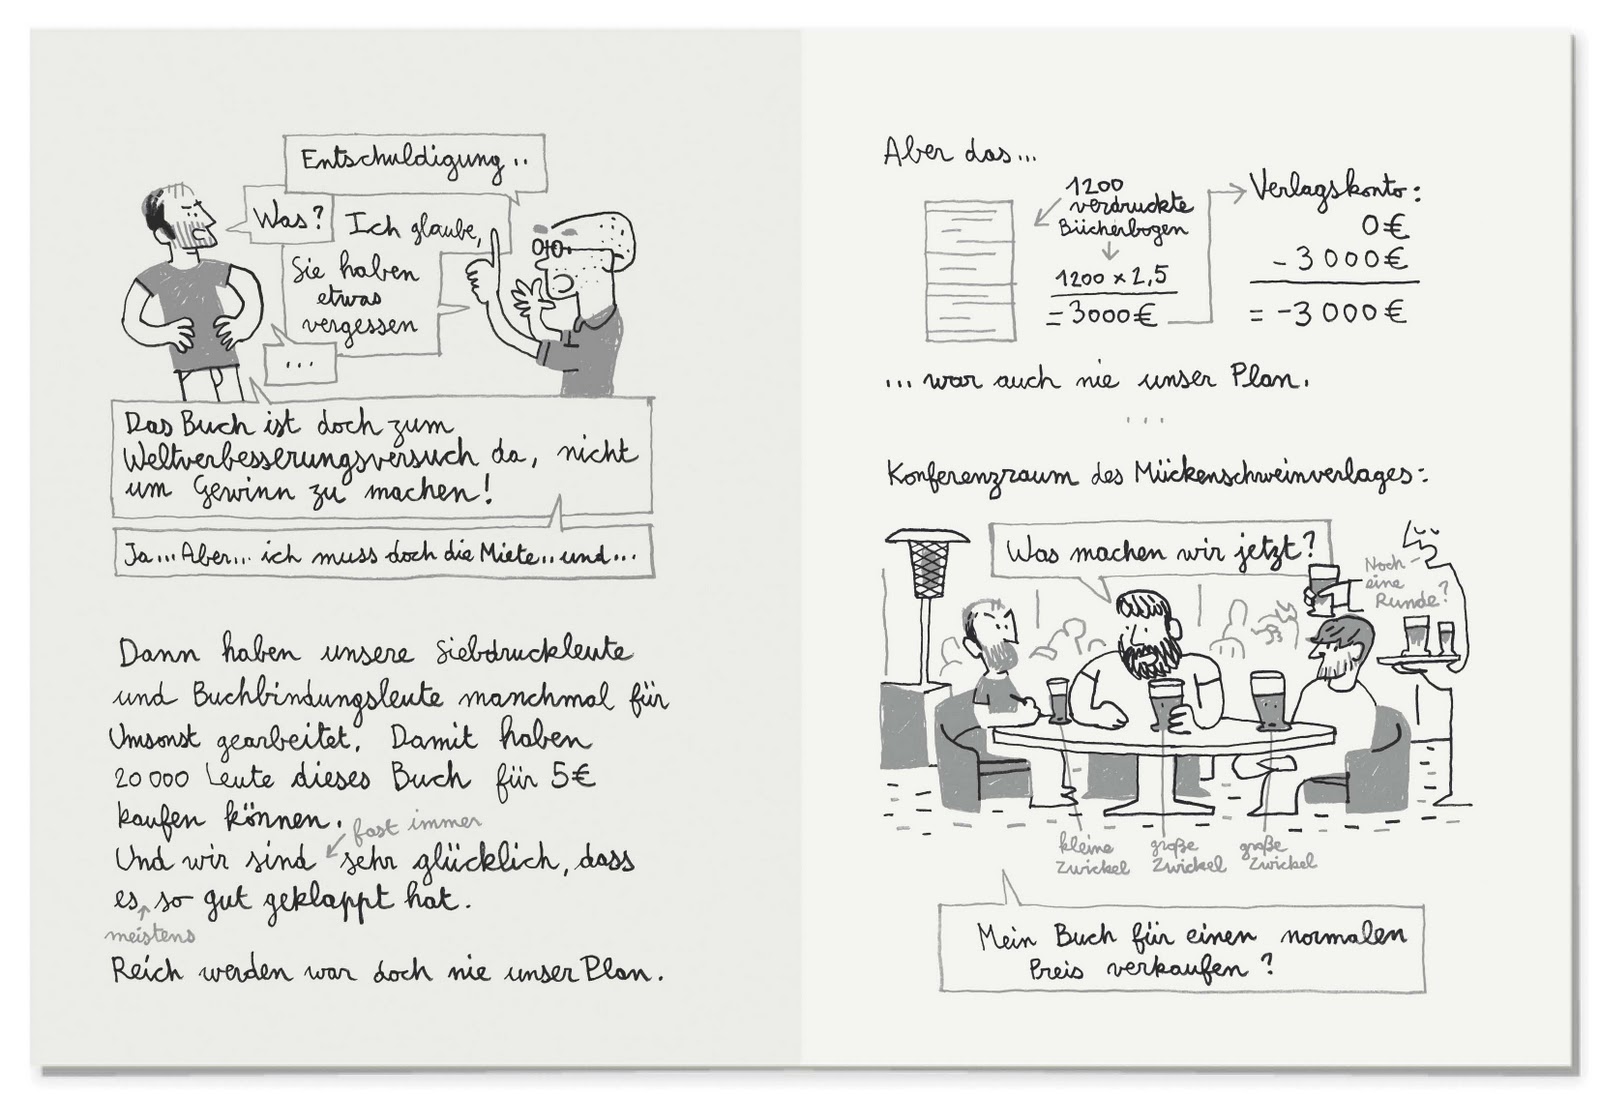 Entschuldigung..
Was?
Ich glaube,
Sie haben
etwas
vergessen
...
Das Buch ist doch zum
Weltverbesserungsversuch da, nicht
um Gewinn zu machen!
Ja... Aber... ich muss doch die Miete.. und...
Dann haben unsere Siebdruckleute
und Buchbindungsleute manchmal für
Umsonst gearbeitet. Damit haben
20000 Leute dieses Buch für 5€
kaufen können.
fast immer
Und wir sind sehr glücklich, dass
es so gut geklappt hat.
meistens
Reich werden war doch nie unser Plan.
Aber das...
1200
verdruckte
Bücherbogen
1200 x 2,5
= 3000€
Verlagskonto:
0€
- 3000€
= -3000€
... war auch nie unser Plan.
...
Konferenzraum des Mückenschweinverlages:
Was machen wir jetzt?
Noch
eine
Runde?
kleine
Zwickel
große
Zwickel
große
Zwickel
Mein Buch für einen normalen
Preis verkaufen?